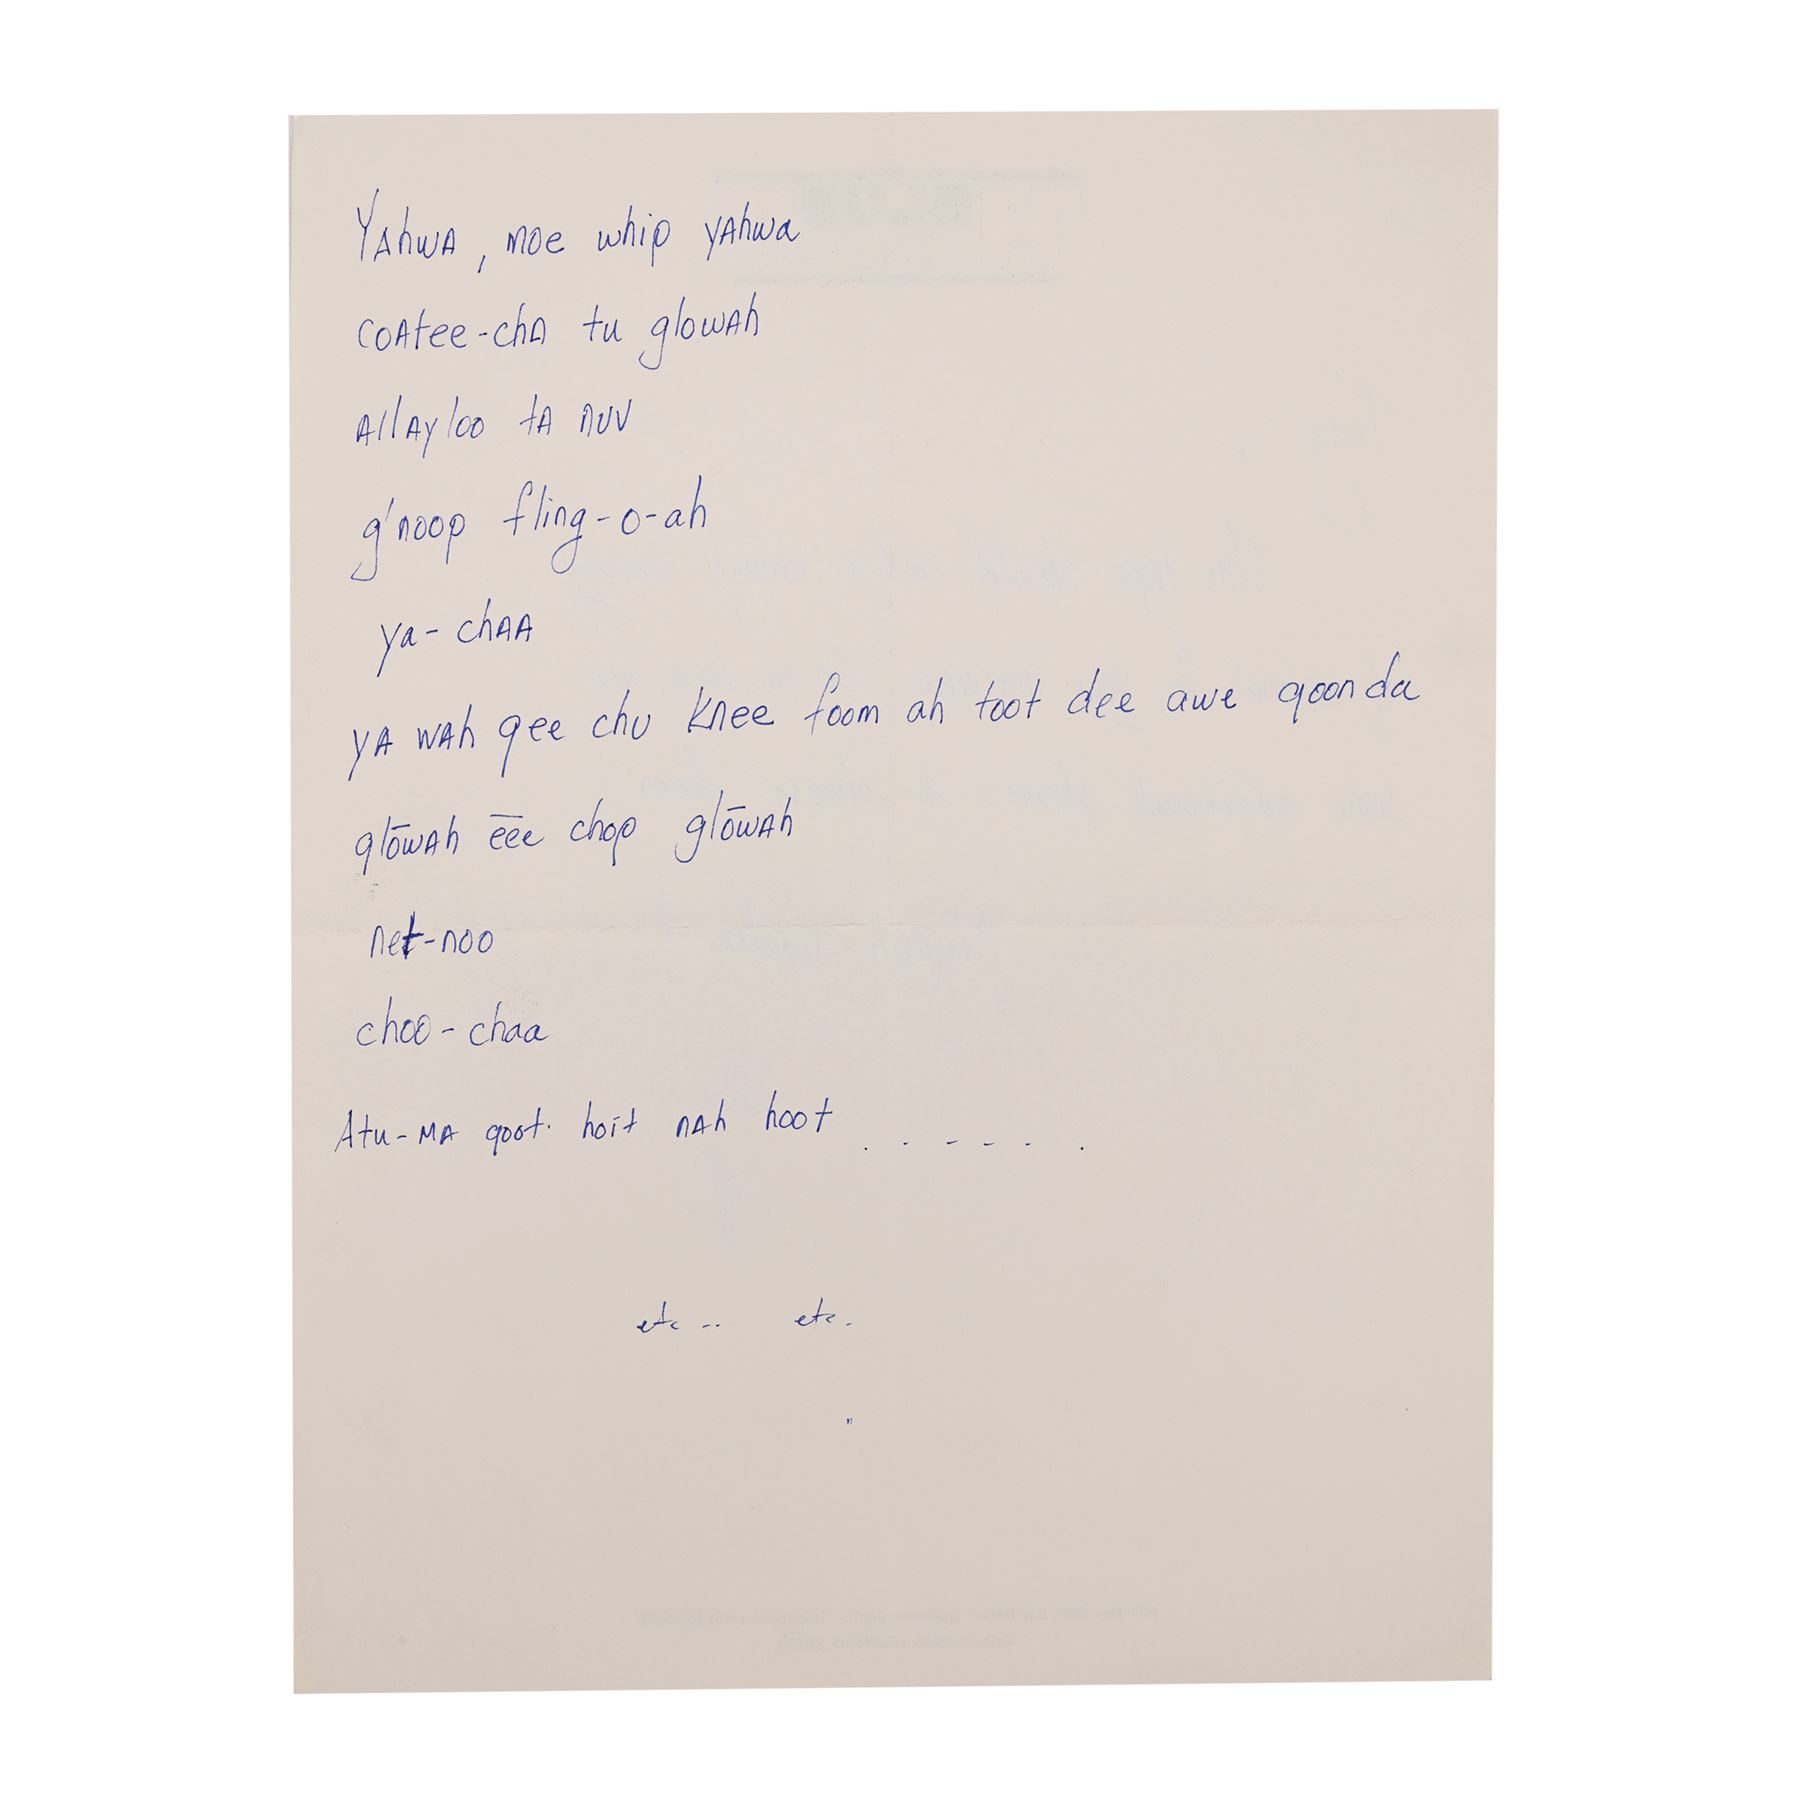 Yahwa, moe whip yahwa
coatee-cha tu glowah
allayloo ta nuv
g'noop fling-o-ah
ya-chaa
ya wah gee chu knee foom ah toot dee awe goonda
glōwah ēee chop glōwah
net-noo
choo-chaa
Atu-ma goot. hoit nah hoot . . - - - .
etc .. etc.